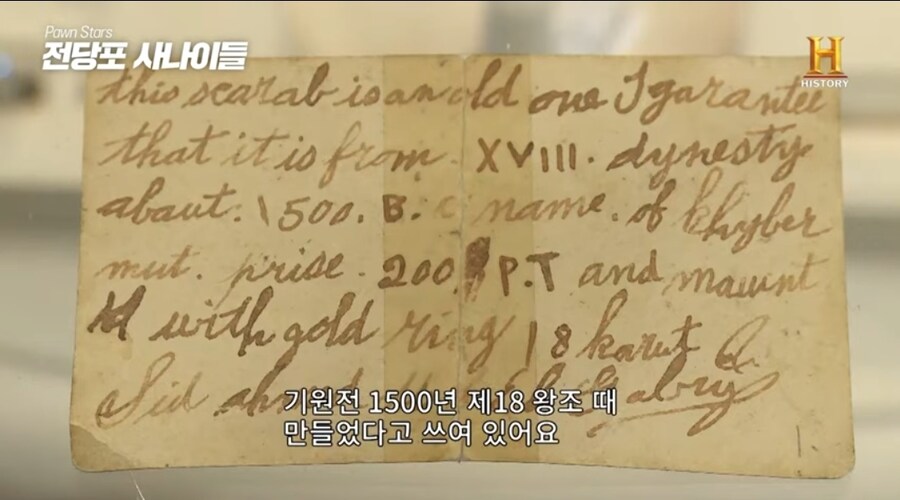 Pawn Stars
전당포 사나이들
H
HISTORY
this scarab is an old one I garantee
that it is from. XVIII. dynesty
abaut. 1500. B. c name. of khyber
mut. prise. 200 P.T and mawnt
with gold ring 18 karut
Sid
기원전 1500년 제18 왕조 때
만들었다고 쓰여 있어요